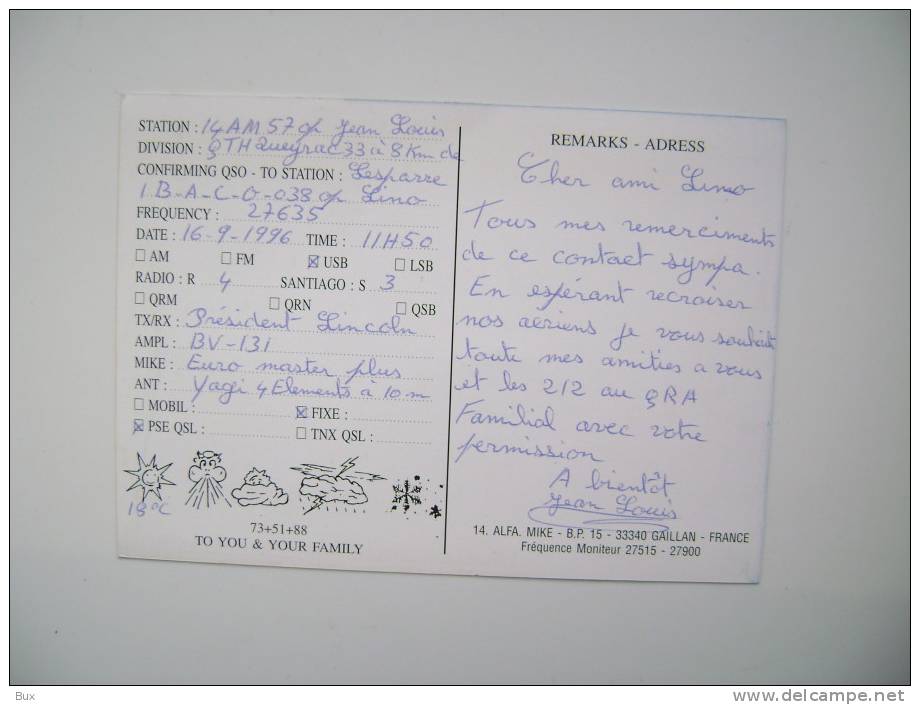 STATION : 14 AM 57 op Jean Louis
DIVISION : QTH Queyrac 33 à 8 Km de
CONFIRMING QSO - TO STATION : Lesparre
1 B-A-C-O-038 op Lino
FREQUENCY : 27635
DATE : 16-9-1996 TIME : 11H50
AM FM USB LSB
RADIO : R 4 SANTIAGO : S 3
QRM QRN QSB
TX/RX : Président Lincoln
AMPL : BV-131
MIKE : Euro master plus
ANT : Yagi 4 Elements à 10 m
MOBIL : FIXE :
PSE QSL : TNX QSL :
18°C
73+51+88
TO YOU & YOUR FAMILY
REMARKS - ADRESS
Cher ami Lino
Tous mes remerciments
de ce contact sympa.
En espérant recroiser
nos aériens je vous souhaite
toute mes amitiés a vous
et les 212 au QRA
Familial avec votre
permission
A bientôt
Jean Louis
14. ALFA. MIKE - B.P. 15 - 33340 GAILLAN - FRANCE
Fréquence Moniteur 27515 - 27900
Bux
www.delcampe.net